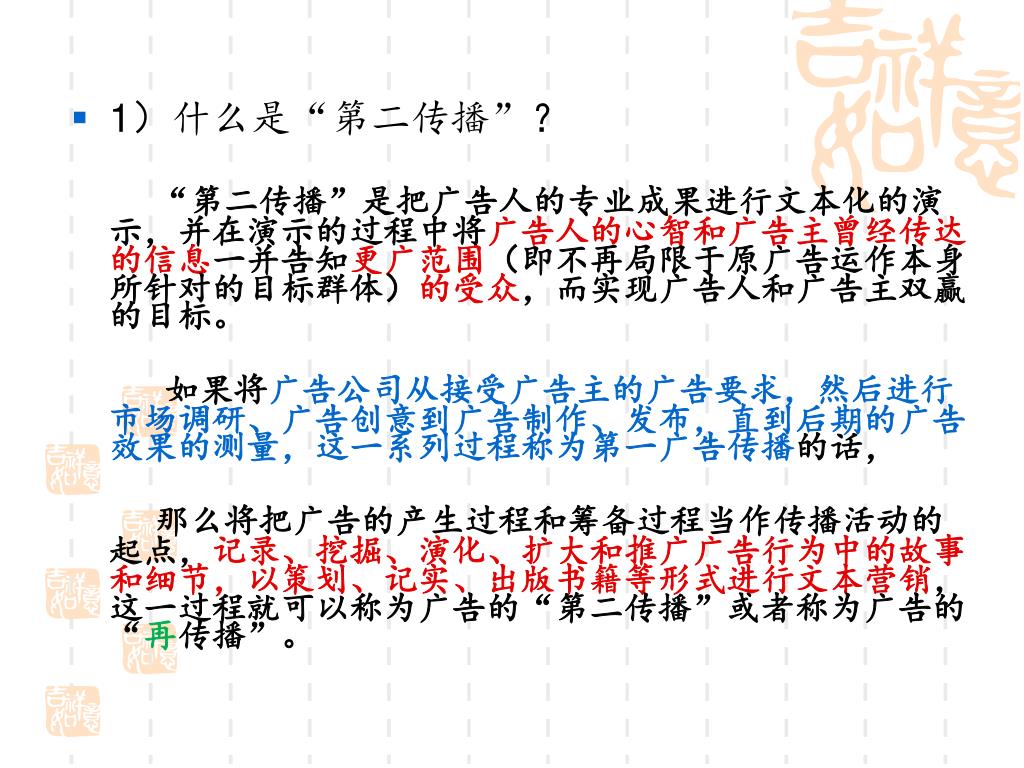 吉祥
如意
1）什么是“第二传播”？
“第二传播”是把广告人的专业成果进行文本化的演
示，并在演示的过程中将广告人的心智和广告主曾经传达
的信息一并告知更广范围（即不再局限于原广告运作本身
所针对的目标群体）的受众，而实现广告人和广告主双赢
的目标。
如果将广告公司从接受广告主的广告要求，然后进行
市场调研、广告创意到广告制作、发布，直到后期的广告
效果的测量，这一系列过程称为第一广告传播的话，
那么将把广告的产生过程和筹备过程当作传播活动的
起点，记录、挖掘、演化、扩大和推广广告行为中的故事
和细节，以策划、记实、出版书籍等形式进行文本营销，
这一过程就可以称为广告的“第二传播”或者称为广告的
“再传播”。
吉祥
如意
吉祥
如意
吉祥
如意
吉祥
如意
吉祥
如意
吉祥
如意